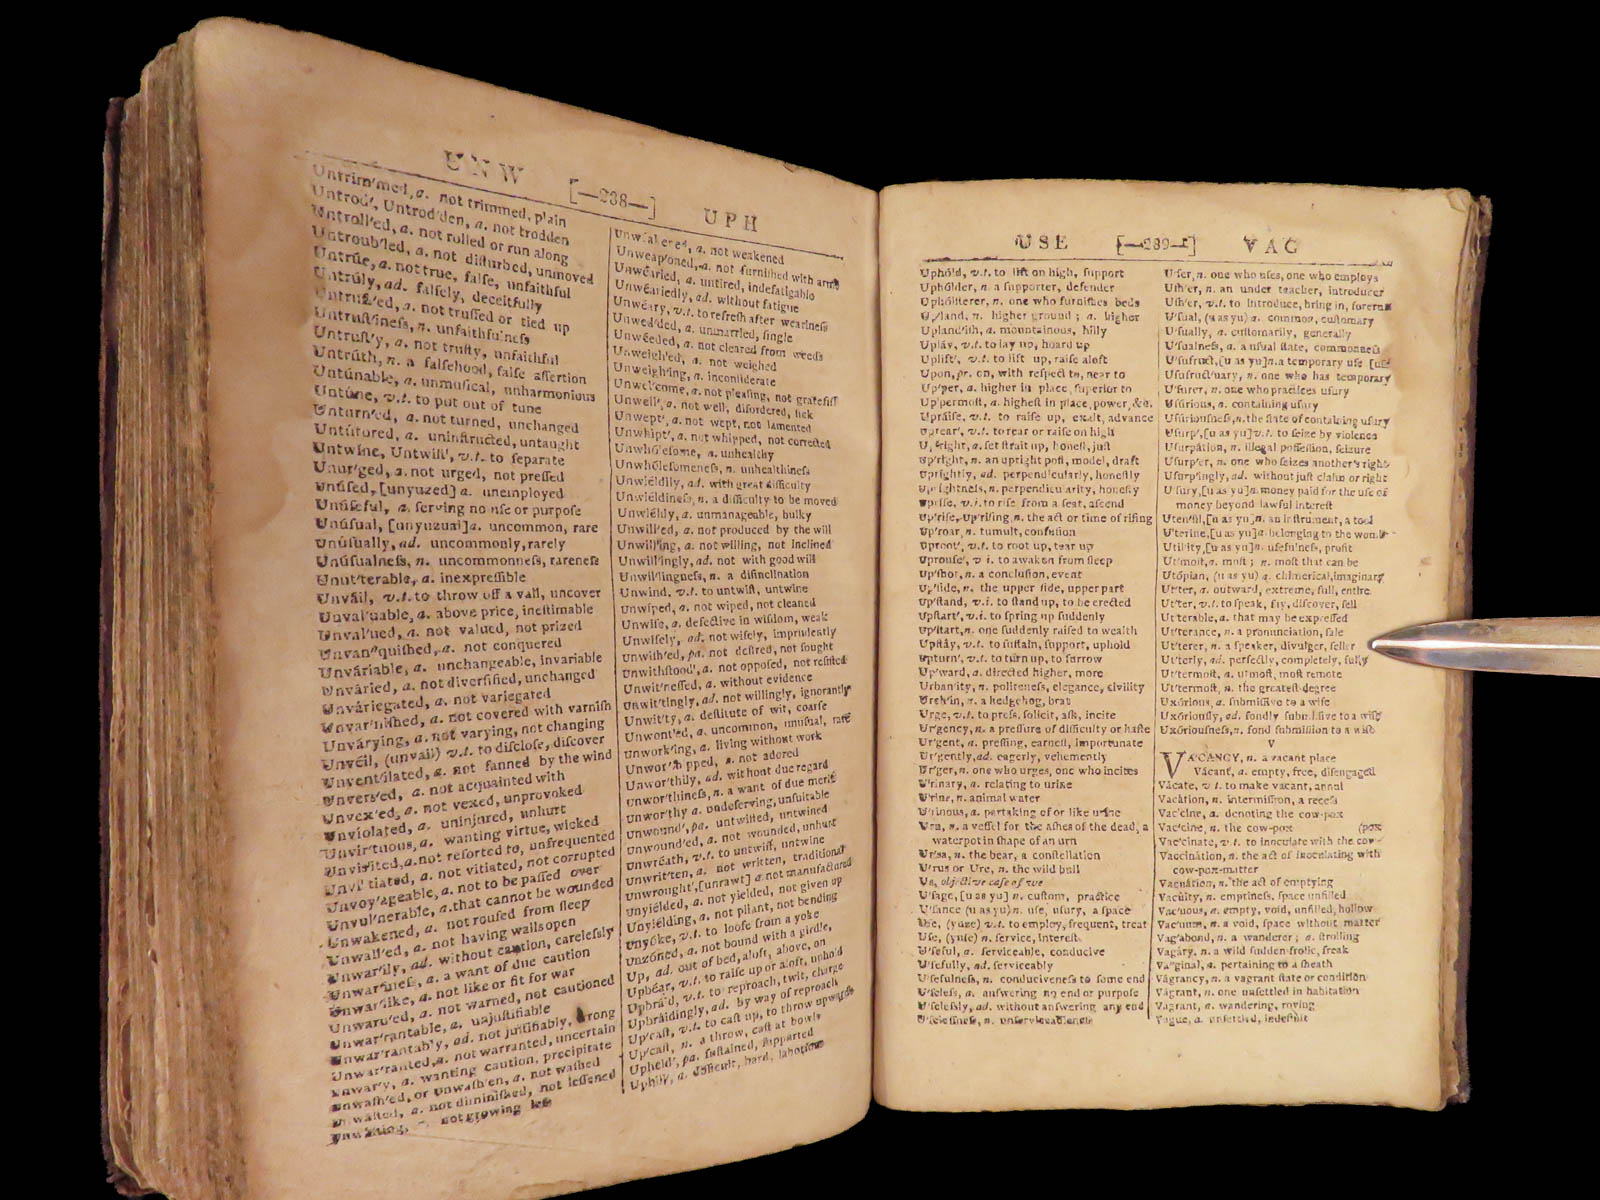 UNW [—238—] UPH
Untrim'med, a. not trimmed, plain
Untrod', Untrod'den, a. not trodden
Untroll'ed, a. not rolled or run along
Untroub'led, a. not diſturbed, unmoved
Untrūe, a. not true, falſe, unfaithful
Untrúly, ad. falſely, deceitfully
Untruſs'ed, a. not truſſed or tied up
Untruſt'ineſs, n. unfaithfulneſs
Untruſt'y, a. not truſty, unfaithful
Untrúth, n. a falſehood, falſe aſſertion
Untúnable, a. unmuſical, unharmonious
Untúne, v.t. to put out of tune
Unturn'ed, a. not turned, unchanged
Untútored, a. uninſtructed, untaught
Untwíne, Untwiſt', v.t. to separate
Unur'ged, a. not urged, not preſſed
Unúſed, [unyuzed] a. unemployed
Unúſeful, a. ſerving no uſe or purpoſe
Unúſual, [unyuzual] a. uncommon, rare
Unúſually, ad. uncommonly, rarely
Unúſualneſs, n. uncommonneſs, rareneſs
Unut'terable, a. inexpreſſible
Unváil, v.t. to throw off a vail, uncover
Unval'uable, a. above price, ineſtimable
Unval'ued, a. not valued, not prized
Unvan'quiſhed, a. not conquered
Unváriable, a. unchangeable, invariable
Unváried, a. not diverſified, unchanged
Unváriegated, a. not variegated
Unvar'niſhed, a. not covered with varniſh
Unvárying, a. not varying, not changing
Unvéil, (unvail) v.t. to diſcloſe, diſcover
Unvent'ilated, a. not fanned by the wind
Unverſ'ed, a. not acquainted with
Unvex'ed, a. not vexed, unprovoked
Unvíolated, a. uninjured, unhurt
Unvir'tuous, a. wanting virtue, wicked
Unviſ'ited, a. not reſorted to, unfrequented
Unvi'tiated, a. not vitiated, not corrupted
Unvoy'ageable, a. not to be paſſed over
Unvul'nerable, a. that cannot be wounded
Unwakened, a. not rouſed from ſleep
Unwall'ed, a. not having walls open
Unwar'ily, ad. without caution, careleſsly
Unwar'ineſs, a. a want of due caution
Unwar'like, a. not like or fit for war
Unwarn'ed, a. not warned, not cautioned
Unwar'rantable, a. unjuſtifiable
Unwar'rantably, ad. not juſtifiably, wrong
Unwar'ranted, a. not warranted, uncertain
Unwar'y, a. wanting caution, precipitate
Unwaſh'ed, or unwaſh'en, a. not waſhed
Unwaſted, a. not diminiſhed, not leſſened
not growing leſs
Unweakened, a. not weakened
Unweap'oned, a. not furniſhed with arms
Unwéaried, a. untired, indefatigable
Unwéariedly, ad. without fatigue
Unwéary, v.t. to refreſh after wearineſs
Unwed'ded, a. unmarried, ſingle
Unwéeded, a. not cleared from weeds
Unweigh'ed, a. not weighed
Unweigh'ing, a. inconſiderate
Unwel'come, a. not pleaſing, not grateful
Unwell', a. not well, diſordered, ſick
Unwept', a. not wept, not lamented
Unwhipt', a. not whipped, not corrected
Unwhóleſome, a. unhealthy
Unwhóleſomeneſs, n. unhealthineſs
Unwíeldily, ad. with great difficulty
Unwíeldineſs, n. a difficulty to be moved
Unwíeldy, a. unmanageable, bulky
Unwill'ed, a. not produced by the will
Unwill'ing, a. not willing, not inclined
Unwil'lingly, ad. not with good will
Unwil'lingneſs, n. a diſinclination
Unwínd, v.t. to untwiſt, untwine
Unwíped, a. not wiped, not cleaned
Unwíſe, a. defective in wiſdom, weak
Unwíſely, ad. not wiſely, imprudently
Unwiſh'ed, pa. not deſired, not ſought
Unwithſtood', a. not oppoſed, not reſiſted
Unwit'neſſed, a. without evidence
Unwit'tingly, ad. not willingly, ignorantly
Unwit'ty, a. deſtitute of wit, coarſe
Unwont'ed, a. uncommon, unuſual, rare
Unwork'ing, a. living without work
Unwor'ſhipped, a. not adored
Unwor'thily, ad. without due regard
Unwor'thineſs, n. a want of due merit
Unwor'thy a. undeſerving, unſuitable
Unwound', pa. untwiſted, untwined
Unwound'ed, a. not wounded, unhurt
Unwréath, v.t. to untwiſt, untwine
Unwrit'ten, a. not written, traditional
Unwrought', [unrawt] a. not manufactured
Unyíelded, a. not yielded, not given up
Unyíelding, a. not pliant, not bending
Unyóke, v.t. to looſe from a yoke
Unzóned, a. not bound with a girdle,
Up, ad. out of bed, aloft, above, on
Upbéar, v.t. to raiſe up or aloft, uphold
Upbráid, v.t. to reproach, twit, charge
Upbráidingly, ad. by way of reproach
Up'caſt, v.t. to caſt up, to throw upwards
Up'caſt, n. a throw, caſt at bowls
Upheld', pa. ſuſtained, ſupported
Uphill, a. difficult, hard, laborious
USE [—239—] VAC
Uphóld, v.t. to lift on high, ſupport
Uphólder, n. a ſupporter, defender
Uphólſterer, n. one who furniſhes beds
Up'land, n. higher ground; a. higher
Upland'iſh, a. mountainous, hilly
Upláy, v.t. to lay up, hoard up
Uplift', v.t. to lift up, raiſe aloft
Upon, pr. on, with reſpect to, near to
Up'per, a. higher in place, ſuperior to
Up'permoſt, a. higheſt in place, power, &c.
Upráiſe, v.t. to raiſe up, exalt, advance
Uprear', v.t. to rear or raiſe on high
Up'right, a. ſet ſtrait up, honeſt, juſt
Up'right, n. an upright poſt, model, draft
Up'rightly, ad. perpendicularly, honeſtly
Up'rightneſs, n. perpendicularity, honeſty
Upriſe, v.i. to riſe from a ſeat, aſcend
Up'riſe, Up'riſing, n. the act or time of riſing
Up'roar, n. tumult, confuſion
Uproot', v.t. to root up, tear up
Uprouſe', v.t. to awaken from ſleep
Up'ſhot, n. a concluſion, event
Up'ſide, n. the upper ſide, upper part
Up'ſtand, v.i. to ſtand up, to be erected
Upſtart', v.i. to ſpring up ſuddenly
Up'ſtart, n. one ſuddenly raiſed to wealth
Upſtáy, v.t. to ſuſtain, ſupport, uphold
Upturn', v.t. to turn up, to furrow
Up'ward, a. directed higher, more
Urban'ity, n. politeneſs, elegance, civility
Urch'in, n. a hedgehog, brat
Urge, v.t. to preſs, ſolicit, aſk, incite
Ur'gency, n. a preſſure of difficulty or haſte
Ur'gent, a. preſſing, earneſt, importunate
Ur'gently, ad. eagerly, vehemently
Ur'ger, n. one who urges, one who incites
U'rinary, a. relating to urine
U'rine, n. animal water
U'rinous, a. partaking of or like urine
Urn, n. a veſſel for the aſhes of the dead, a
waterpot in ſhape of an urn
Ur'ſa, n. the bear, a conſtellation
U'rus or Ure, n. the wild bull
Us, objective caſe of we
U'ſage, [u as yu] n. cuſtom, practice
U'ſance (u as yu) n. uſe, uſury, a ſpace
Uſe, (yuze) v.t. to employ, frequent, treat
Uſe, (yuſe) n. ſervice, intereſt
U'ſeful, a. ſerviceable, conducive
U'ſefully, ad. ſerviceably
U'ſefulneſs, n. conduciveneſs to ſome end
U'ſeleſs, a. anſwering no end or purpoſe
U'ſeleſsly, ad. without anſwering any end
U'ſeleſſneſs, n. unſerviceableneſs
U'ſer, n. one who uſes, one who employs
Uſh'er, n. an under teacher, introducer
Uſh'er, v.t. to introduce, bring in, forerun
U'ſual, (u as yu) a. common, cuſtomary
U'ſually, a. cuſtomarily, generally
U'ſualneſs, a. a uſual ſtate, commonneſs
U'ſufruct, [u as yu] n. a temporary uſe [uſe
Uſufruct'uary, n. one who has temporary
U'ſurer, n. one who practices uſury
Uſúrious, a. containing uſury
Uſúriouſneſs, n. the ſtate of containing uſury
Uſurp', [u as yu] v.t. to ſeize by violence
Uſurpátion, n. illegal poſſeſſion, ſeizure
Uſurp'er, n. one who ſeizes another's right
Uſurp'ingly, ad. without juſt claim or right
U'ſury, [u as yu] n. money paid for the uſe of
money beyond lawful intereſt
Uten'ſil, [u as yu] n. an inſtrument, a tool
U'terine, [u as yu] a. belonging to the womb
Utility, [u as yu] n. uſefulneſs, profit
Ut'moſt, a. moſt; n. moſt that can be
Utópian, (u as yu) a. chimerical, imaginary
Ut'ter, a. outward, extreme, full, entire
Ut'ter, v.t. to ſpeak, ſay, diſcover, ſell
Ut'terable, a. that may be expreſſed
Ut'terance, n. a pronunciation, ſale
Ut'terer, n. a ſpeaker, divulger, ſeller
Ut'terly, ad. perfectly, completely, fully
Ut'termoſt, a. utmoſt, moſt remote
Ut'termoſt, n. the greateſt degree
Uxórious, a. ſubmiſſive to a wife
Uxóriouſly, ad. fondly ſubmiſſive to a wife
Uxóriouſneſs, n. fond ſubmiſſion to a wife
V
VACANCY, n. a vacant place
Vácant, a. empty, free, diſengaged
Vácate, v.t. to make vacant, annul
Vacátion, n. intermiſſion, a receſs
Vac'cine, a. denoting the cow-pox
Vac'cine, n. the cow-pox (pox
Vac'cinate, v.t. to inoculate with the cow-
Vaccinátion, n. the act of inoculating with
cow-pox-matter
Vacuátion, n. the act of emptying
Vacúity, n. emptineſs, ſpace unfilled
Vac'uous, a. empty, void, unfilled, hollow
Vac'uum, n. a void, ſpace without matter
Vag'abond, n. a wanderer; a. ſtrolling
Vagáry, n. a wild ſudden frolic, freak
Va'ginal, a. pertaining to a ſheath
Vágrancy, n. a vagrant ſtate or condition
Vágrant, n. one unſettled in habitation
Vágrant, a. wandering, roving
Vague, a. unſettled, indefinit